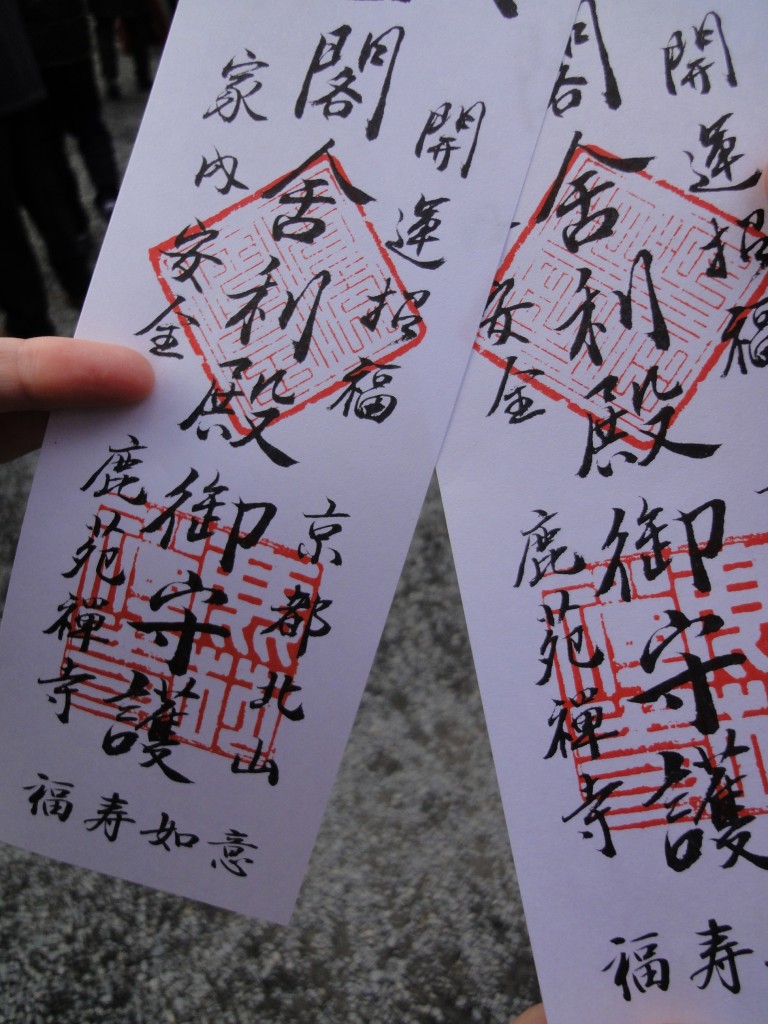 開運招福
閣舎利殿
家内安全
京都北山
御守護
鹿苑禅寺
福寿如意
開運招福
閣舎利殿
安全
御守護
鹿苑禅寺
福寿